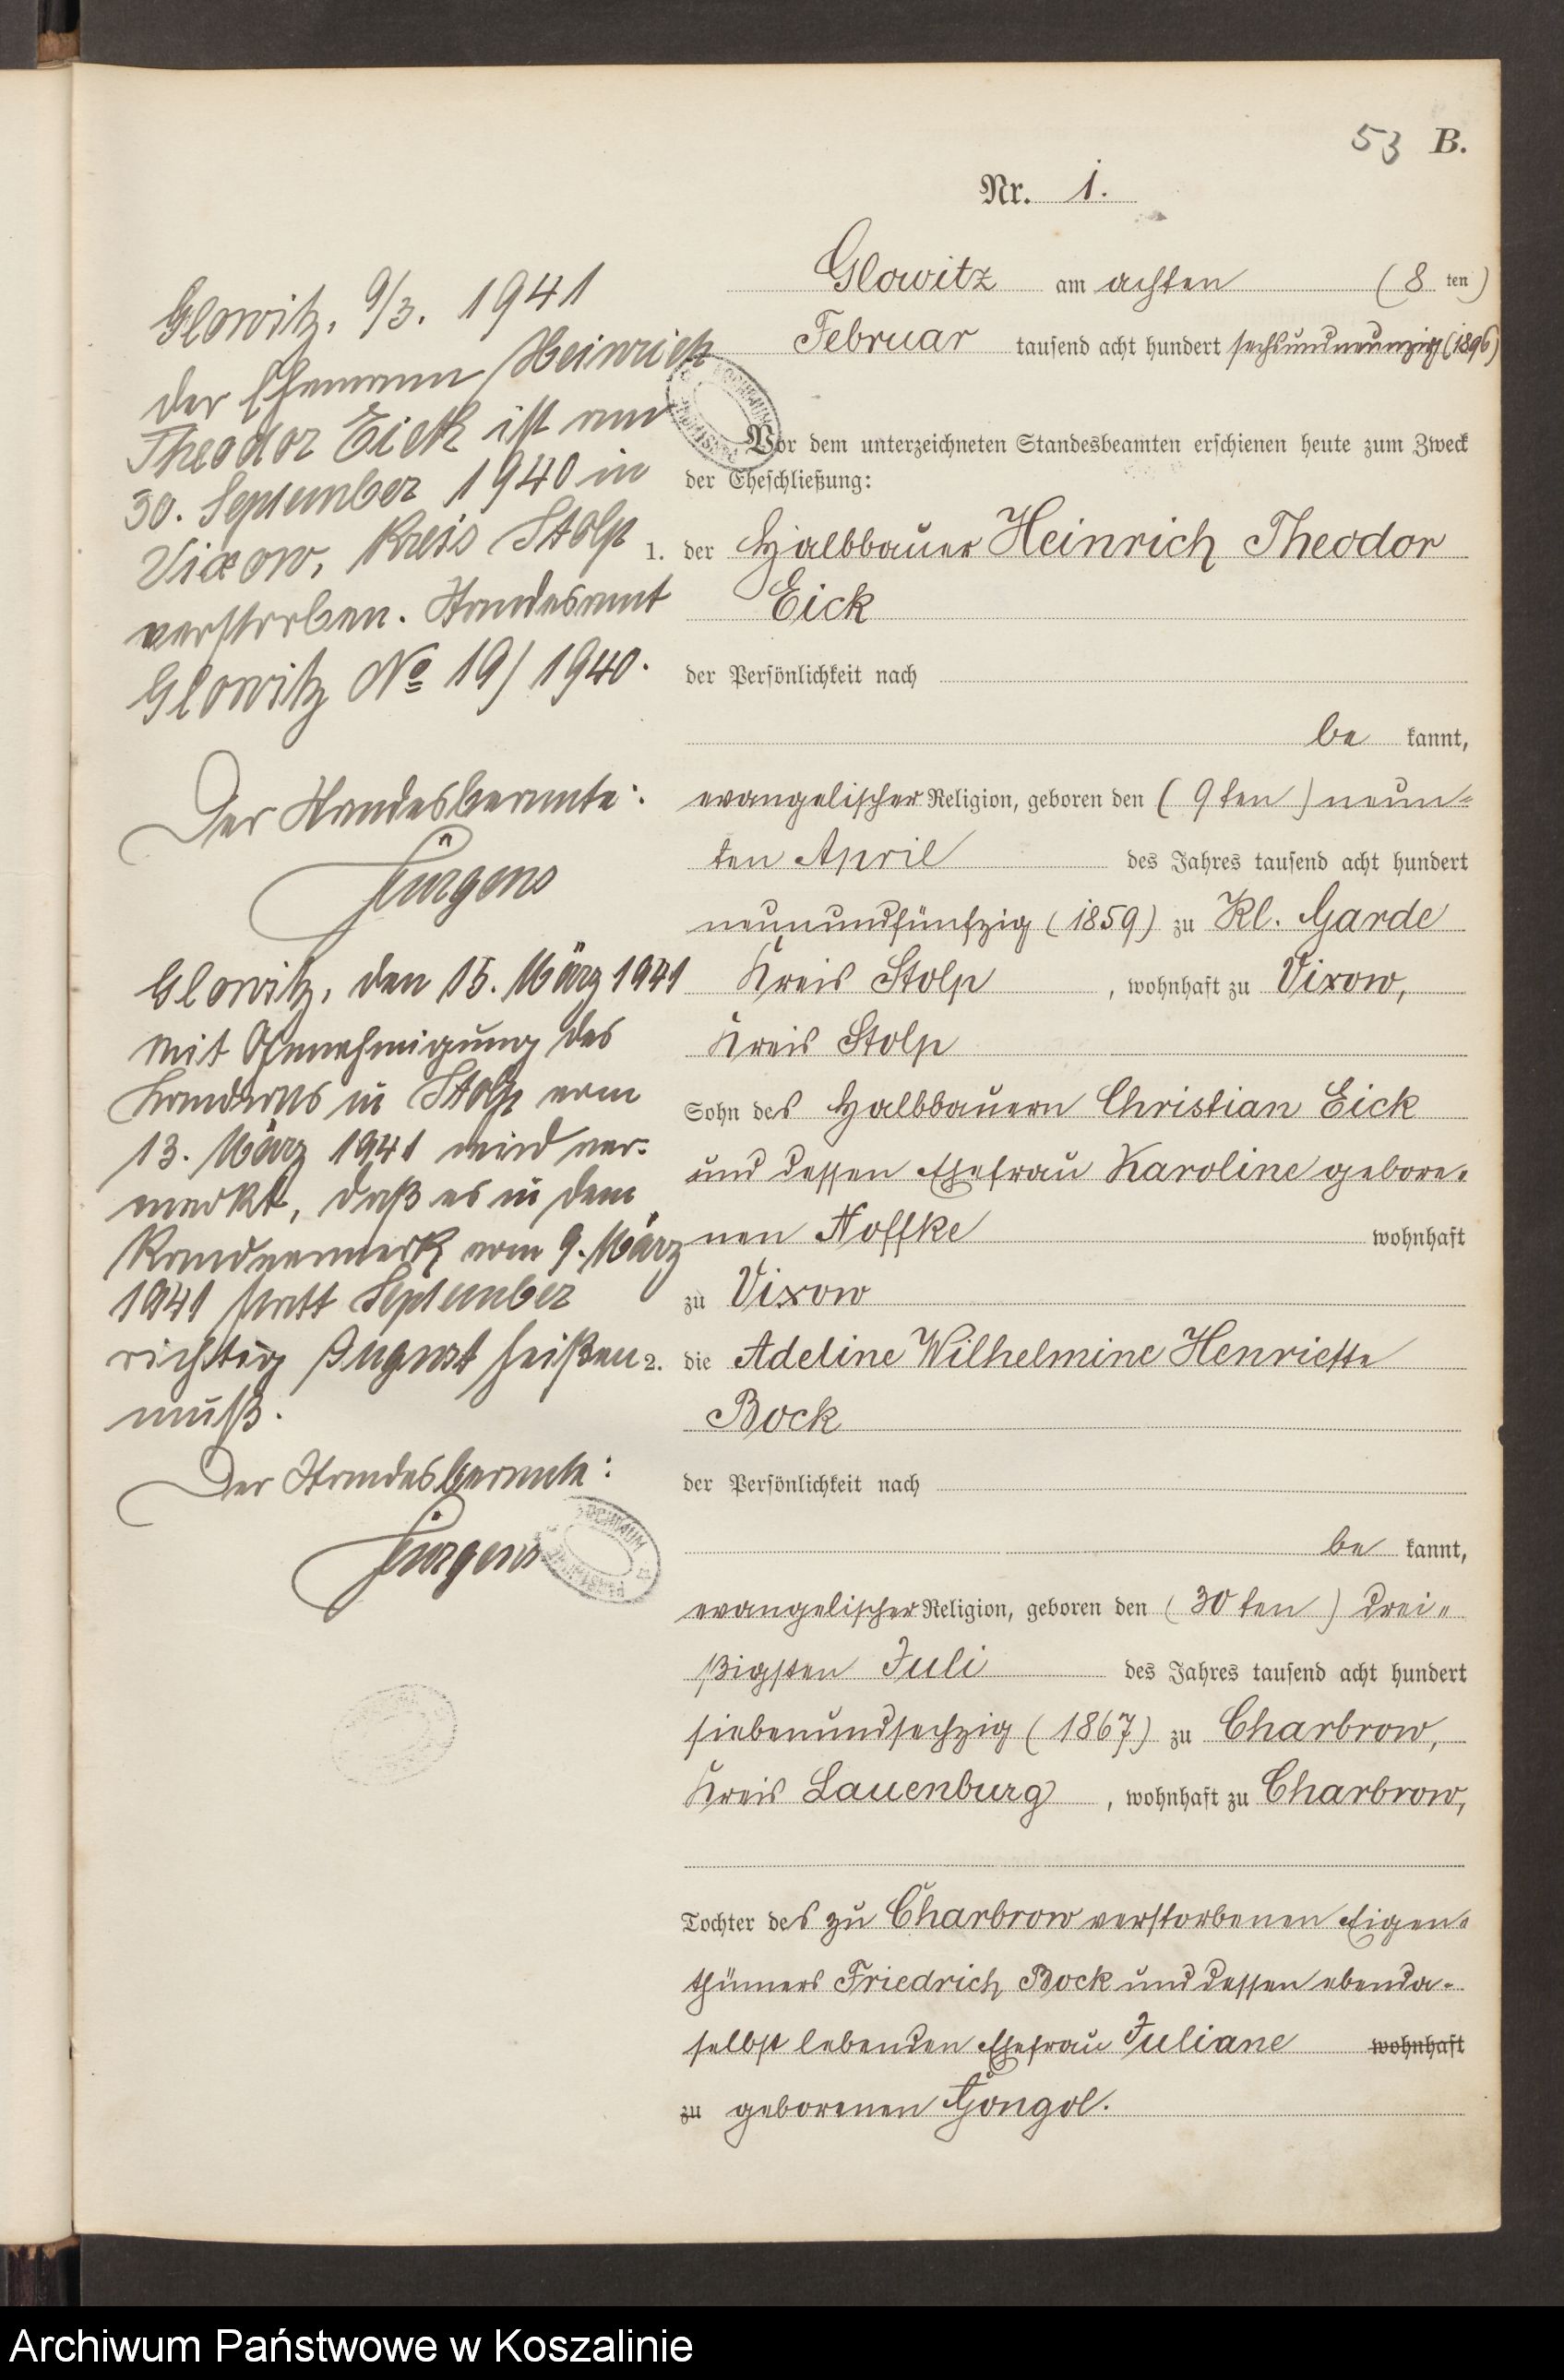 53 B.
Nr. 1.
Glowitz am achten (8 ten)
Februar tausend acht hundert sechsundneunzig (1896)
Vor dem unterzeichneten Standesbeamten erschienen heute zum Zweck
der Eheschließung:
1. der Halbbauer Heinrich Theodor
Eick
der Persönlichkeit nach
be kannt,
evangelischer Religion, geboren den (9ten) neun-
ten April des Jahres tausend acht hundert
neunundfünfzig (1859) zu Kl. Garde
Kreis Stolp, wohnhaft zu Vixow,
Kreis Stolp
Sohn des Halbbauern Christian Eick
und dessen Ehefrau Karoline gebore-
nen Noffke wohnhaft
zu Vixow
2. die Adeline Wilhelmine Henriette
Bock
der Persönlichkeit nach
be kannt,
evangelischer Religion, geboren den (30ten) drei-
ßigsten Juli des Jahres tausend acht hundert
siebenundsechzig (1867) zu Charbrow,
Kreis Lauenburg, wohnhaft zu Charbrow,
Tochter des zu Charbrow verstorbenen Eigen-
thümers Friedrich Bock und dessen ebenda-
selbst lebenden Ehefrau Juliane wohnhaft
zu geborenen Gongol.
Glowitz, 9/3. 1941
der Ehemann Heinrich
Theodor Eick ist am
30. September 1940 in
Vixow, Kreis Stolp
verstorben. Standesamt
Glowitz No 19/1940.
Der Standesbeamte:
Jürgens
Glowitz, den 15. März 1941
Mit Genehmigung des
Landrats in Stolp vom
13. März 1941 wird ver-
merkt, daß es in dem
Randvermerk vom 9. März
1941 statt September
richtig August heißen
muß.
Der Standesbeamte:
Jürgens
Archiwum Państwowe w Koszalinie